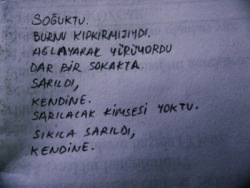 SOĞUKTU.
BURNU KIPKIRMIZIYDI.
AĞLAYARAK YÜRÜYORDU
DAR BİR SOKAKTA.
SARILDI,
KENDİNE.
SARILACAK KİMSESİ YOKTU.
SIKICA SARILDI,
KENDİNE.